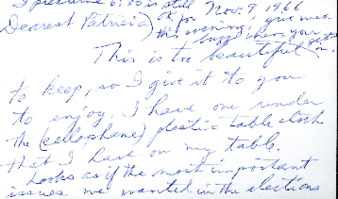 I presume 6:30 is still Nov. 9, 1966
Dearest Patricia, OK for
this evening, give me
a buzz when you get in.
This is too beautiful
to keep, so I give it to you
to enjoy. I have one under
the (cellophane) plastic table cloth
that I have on my table.
Looks as if the most important
issues we wanted in the elections